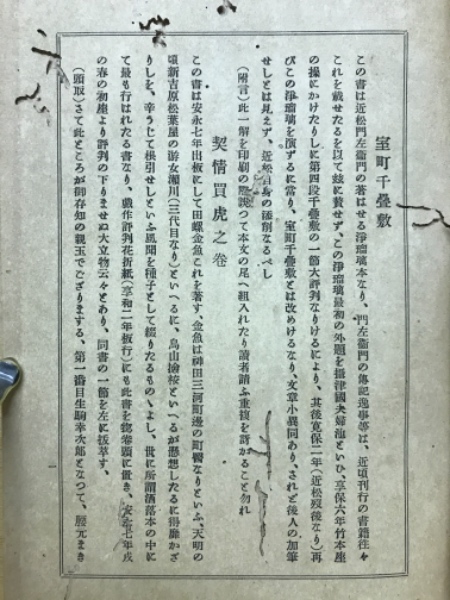 室町千疊敷
この書は近松門左衞門の著はせる淨瑠璃本なり、門左衞門の傳記逸事等は、近頃刊行の書籍往々
これを載せたるを以て玆に贅せず、この淨瑠璃最初の外題を攝津國夫婦池といひ、享保六年竹本座
の操にかけたりしに第四段千疊敷の一節大評判なりけるにより、其後寛保二年(近松歿後なり)再
びこの淨瑠璃を演ずるに當り、室町千疊敷とは改めけるなり、文章小異同あり、されど後人の加筆
せしとは見えず、近松自身の添削なるべし
(附言)此一解を印刷の際誤つて本文の尾へ組入れたり讀者請ふ重複を訝かること勿れ
契情買虎之卷
この書は安永七年出板にして田螺金魚これを著す、金魚は神田三河町邊の町醫なりといふ、天明の
頃新吉原松葉屋の游女瀬川(三代目なり)といへるに、鳥山檢校といへるが懸想したるに得靡かざ
りしを、辛うじて根引せしといふ風聞を種子として綴りたるものゝよし、世に所謂洒落本の中に
て最も行はれたる書なり、戯作評判花折紙(享和二年板行)にも此書を惣卷頭に置き、安永七年戌
の春の初座より評判の下りませぬ大立物云々とあり、同書の一節を左に拔萃す、
(頭取)さて此ところが御存知の親玉でござりまする、第一番目生駒幸次郎となつて、腰元まき